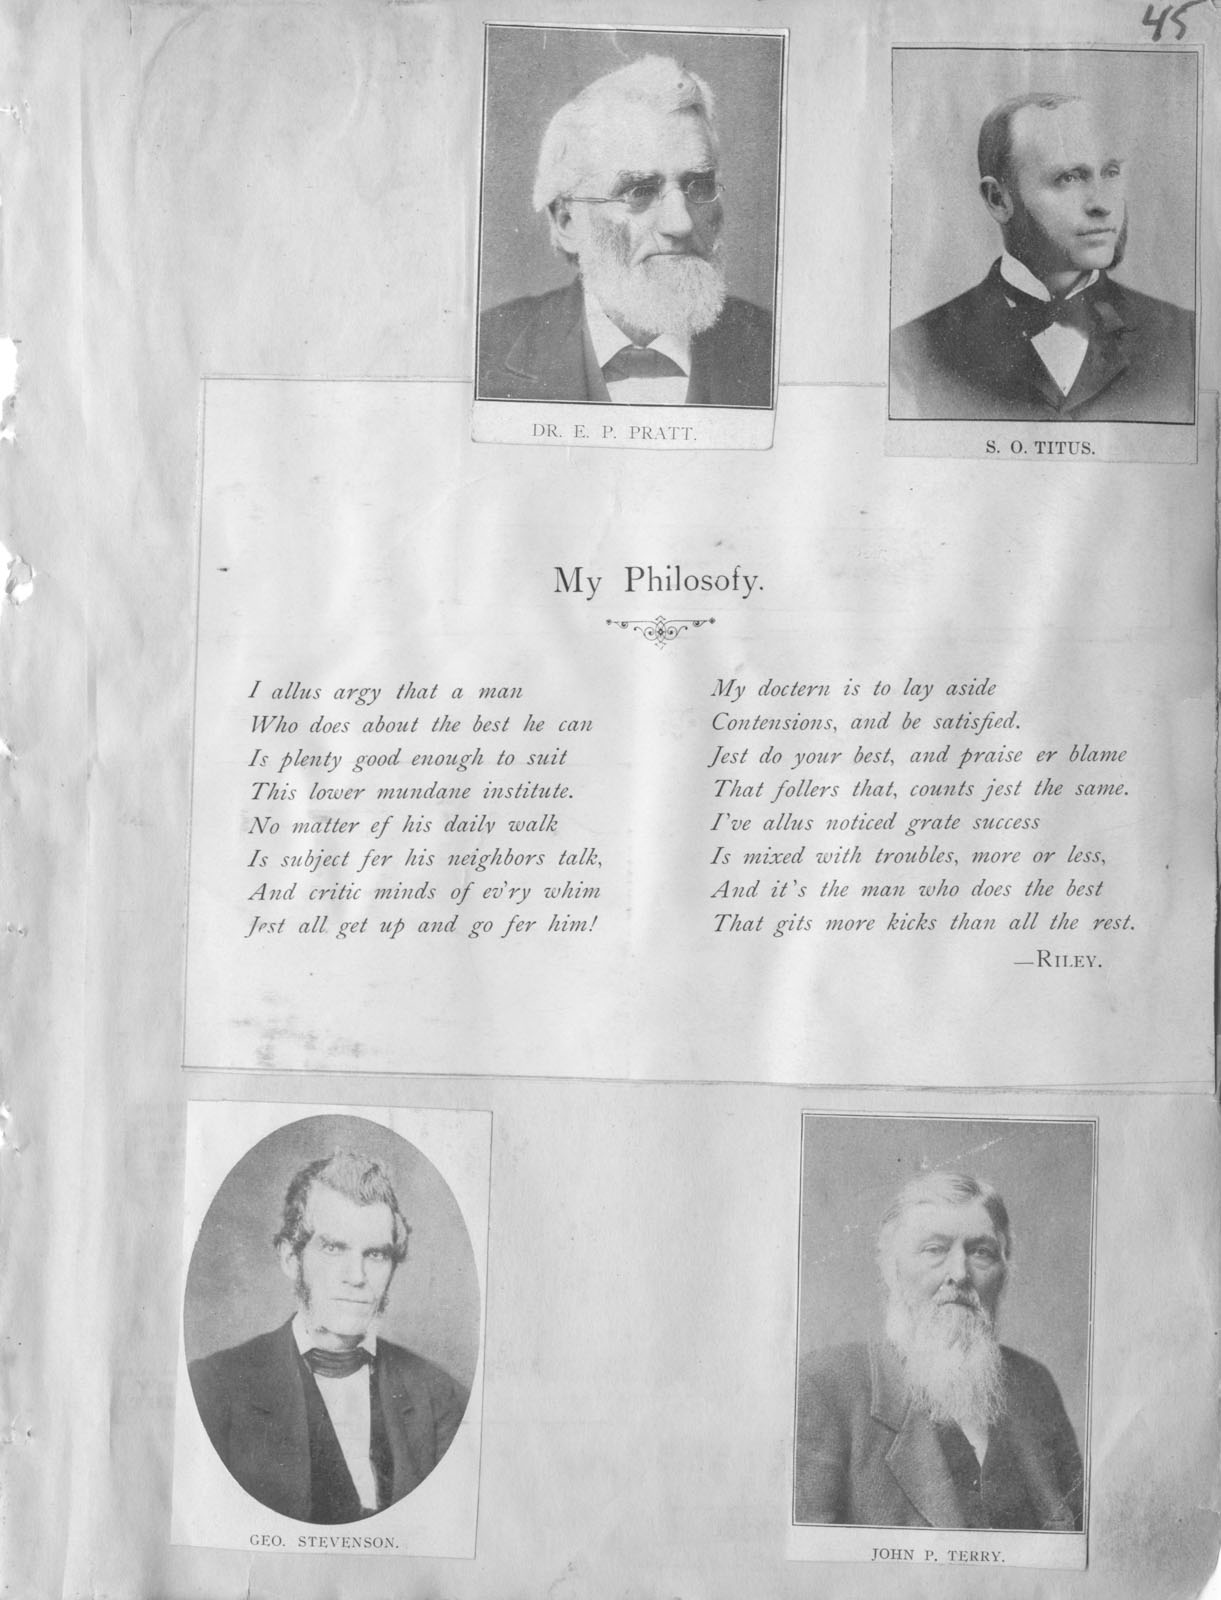 45
DR. E. P. PRATT.
S. O. TITUS.
My Philosofy.
I allus argy that a man
Who does about the best he can
Is plenty good enough to suit
This lower mundane institute.
No matter ef his daily walk
Is subject fer his neighbors talk,
And critic minds of ev'ry whim
Jest all get up and go fer him!
My doctern is to lay aside
Contensions, and be satisfied.
Jest do your best, and praise er blame
That follers that, counts jest the same.
I've allus noticed grate success
Is mixed with troubles, more or less,
And it's the man who does the best
That gits more kicks than all the rest.
—RILEY.
GEO. STEVENSON.
JOHN P. TERRY.